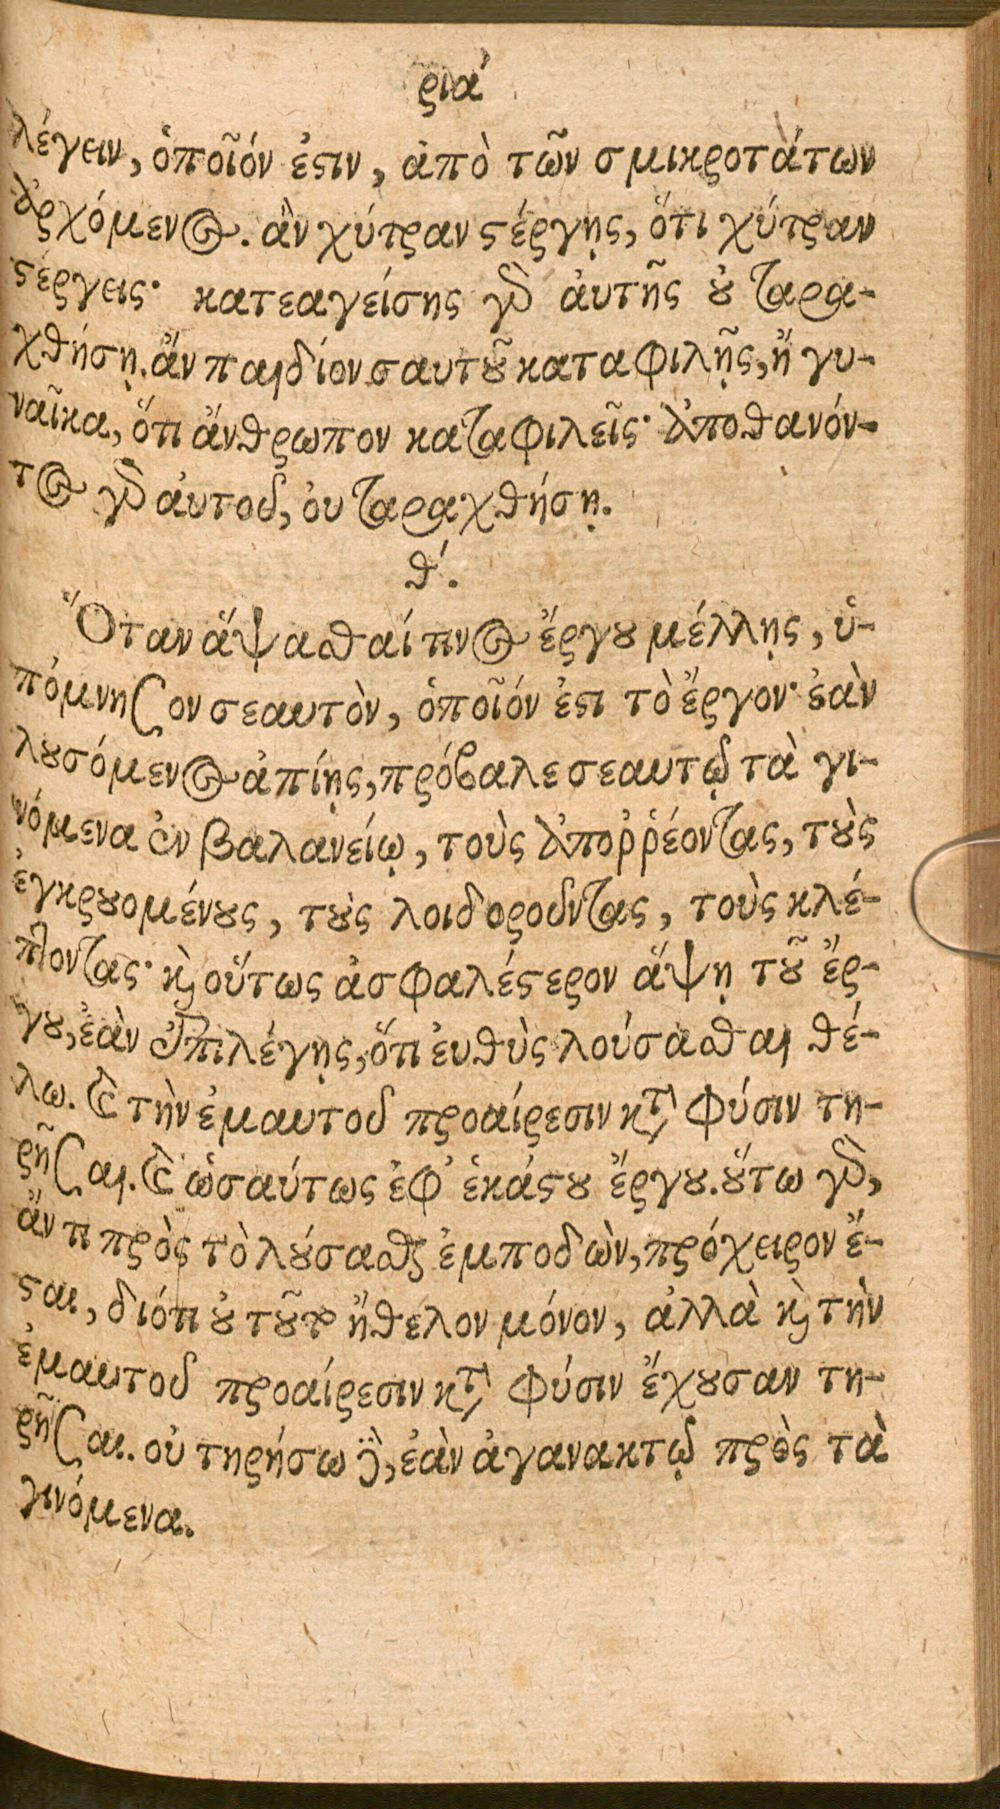 ρια΄
λέγειν, ὁποῖόν ἐϛιν, ἀπὸ τῶν σμικροτάτων
ἀρχόμενος. ἂν χύτραν ϛέργῃς, ὅτι χύτραν
ϛέργεις· κατεαγείσης γὰρ ἀυτῆς ȣ̓ ταρα-
χθήσῃ. ἂν παιδίον σαυτȣ͂ καταφιλῇς, ἢ γυ-
ναῖκα, ὅτι ἄνθρωπον καταφιλεῖς· ἀποθανόν-
τος γὰρ ἀυτοῦ, ὀυ ταραχθήσῃ.
θ΄.
Ὅταν ἅψασθαί τινος ἔργȣ μέλλῃς, ὑ-
πόμνησον σεαυτὸν, ὁποῖόν ἐϛι τὸ ἔργον· ἐὰν
λȣσόμενος ἀπίῃς, πρόβαλε σεαυτῷ τὰ γι-
νόμενα ἐν βαλανείῳ, τοὺς ἀποῤῥέοντας, τȣ̀ς
ἐγκρȣομένȣς, τȣ̀ς λοιδοροῦντας, τοὺς κλέ-
πτοντας· κὶ οὕτως ἀσφαλέϛερον ἅψῃ τȣ͂ ἔρ-
γȣ, ἐὰν ἐπιλέγῃς, ὅτι ἐυθὺς λούσασθαι θέ-
λω. καὶ τὴν ἐμαυτοῦ προαίρεσιν κτ̀ φύσιν τη-
ρῆσαι. καὶ ὡσαύτως ἐφ᾽ ἑκάϛȣ ἔργȣ. ȣ̔́τω γὰρ,
ἄν τι πρὸς τὸ λȣ́σασθαι ἐμποδὼν, πρόχειρον ἔ-
ϛαι, διότι ȣ̓ τȣ͂το ἤθελον μόνον, ἀλλὰ κὶ τὴν
ἐμαυτοῦ προαίρεσιν κτ̀ φύσιν ἔχȣσαν τη-
ρῆσαι. οὐ τηρήσω δὲ, ἐὰν ἀγανακτῷ πρὸς τὰ
γινόμενα.